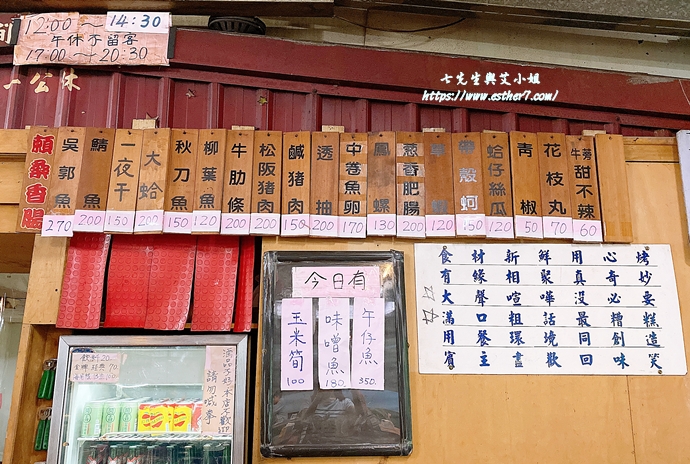 12:00～14:30
午休不留客
17:00～20:30
一公休
七先生與艾小姐
https://www.esther7.com/
賴桑香腸
吳郭魚 270
鯖魚 200
一夜干 150
大蛤 200
秋刀魚 150
柳葉魚 120
牛肋條 200
松阪豬肉 200
鹹豬肉 150
透抽 200
中卷魚卵 170
鳳螺 130
蒜香肥腸 200
120
帶殼蚵 150
蛤仔絲瓜 120
青椒 50
花枝丸 70
牛蒡甜不辣 60
今日有
玉米筍 100
味噌魚 180.
午仔魚 350.
食材新鮮用心烤
有緣相聚真奇妙
大聲喧嘩沒必要
滿口粗話最糟糕
用餐環境同創造
賓主盡歡回味笑
飲料20
請勿喊拳